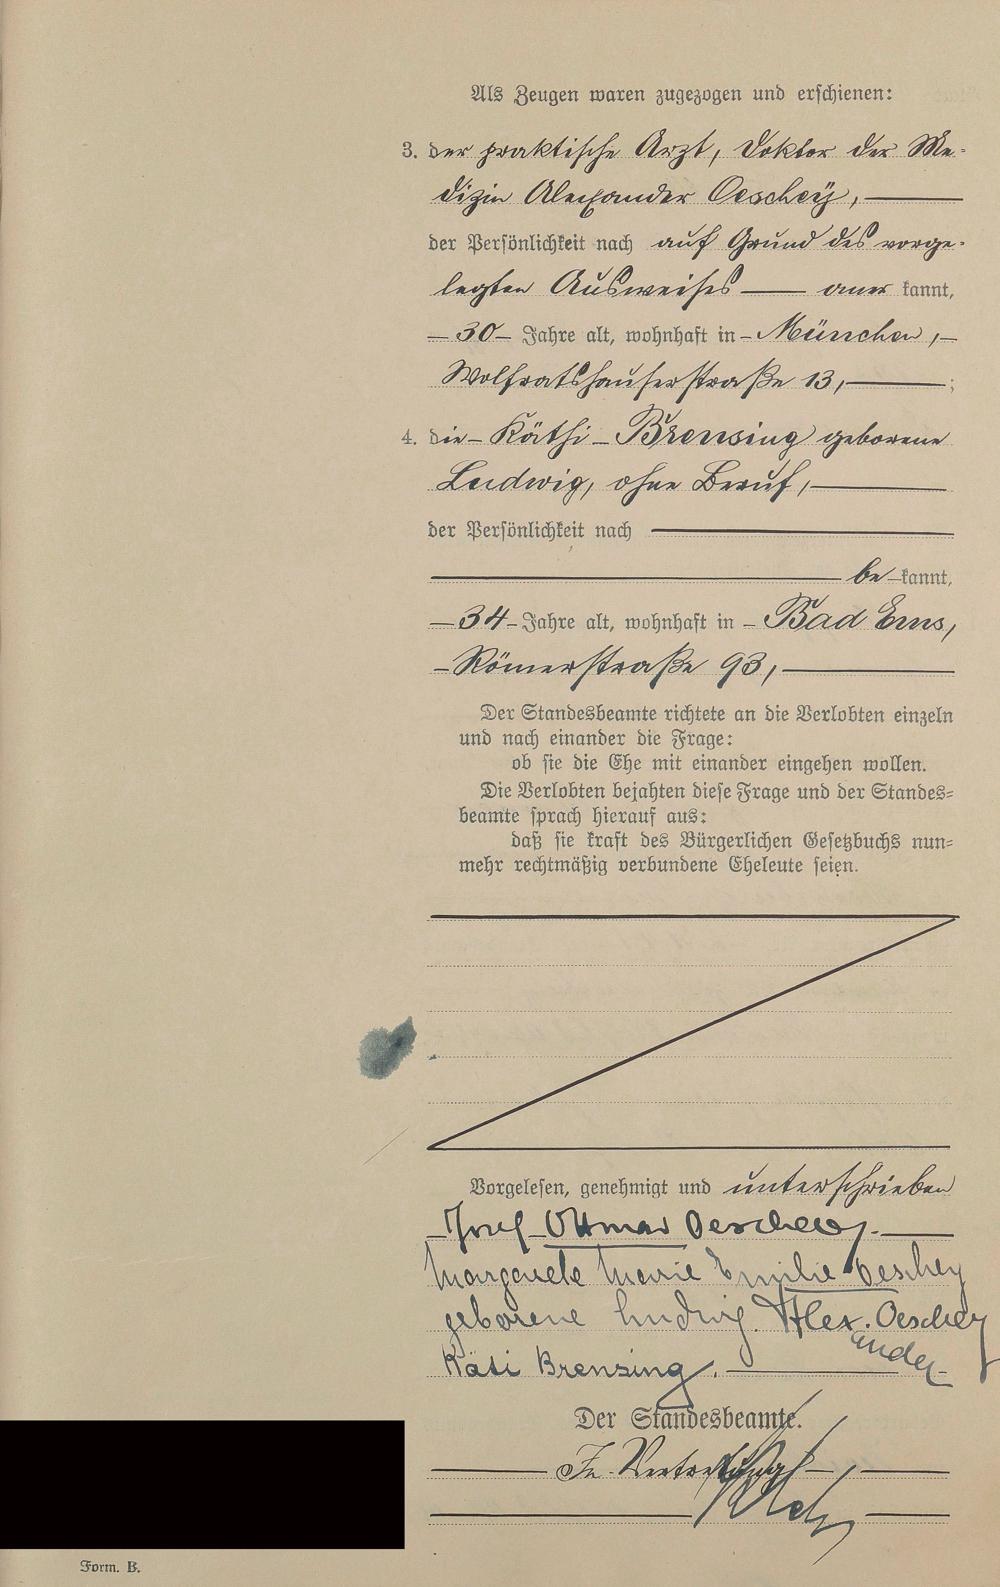 Als Zeugen waren zugezogen und erschienen:
3. der praktische Arzt, Doktor der Me-
dizin Alexander Oeschey,
der Persönlichkeit nach auf Grund des vorge-
legten Ausweises aner kannt,
30 Jahre alt, wohnhaft in München,
Wolfratshauserstraße 13, ;
4. die Käthi Brensing geborene
Ludwig, ohne Beruf,
der Persönlichkeit nach
be kannt,
34 Jahre alt, wohnhaft in Bad Ems,
Römerstraße 93,
Der Standesbeamte richtete an die Verlobten einzeln
und nach einander die Frage:
ob sie die Ehe mit einander eingehen wollen.
Die Verlobten bejahten diese Frage und der Standes-
beamte sprach hierauf aus:
daß sie kraft des Bürgerlichen Gesetzbuchs nun-
mehr rechtmäßig verbundene Eheleute seien.
Vorgelesen, genehmigt und unterschrieben
Josef Ottmar Oeschey.
Margarete Marie Emilie Oeschey
geborene Ludwig. Alex. Oeschey
ander
Käti Brensing.
Der Standesbeamte.
In Vertretung
Form. B.